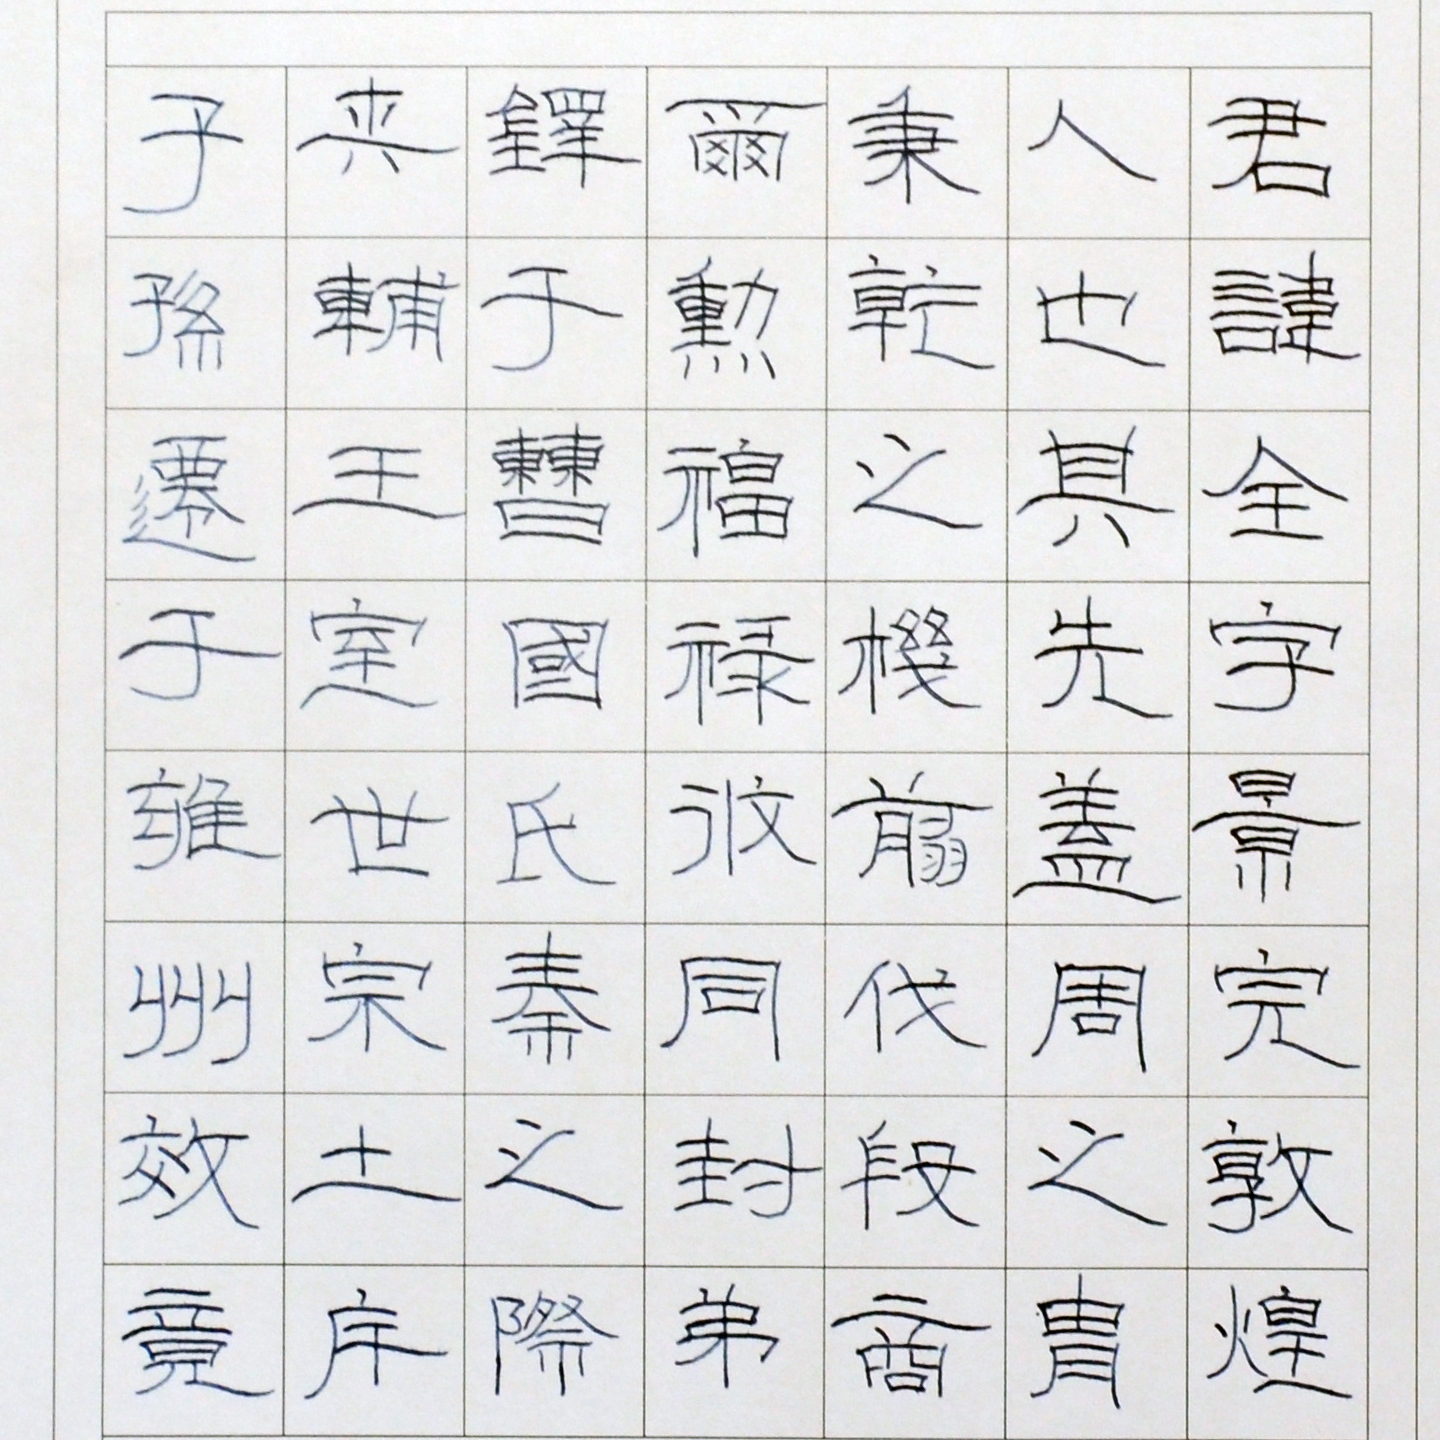 君諱全字景完敦煌
人也其先盖周之胄
秉乾之機翦伐殷商
爾勳福禄攸同封弟
鐸于曹國氏秦之際
夾輔王室世宗土斥
子孫遷于雍州效竟